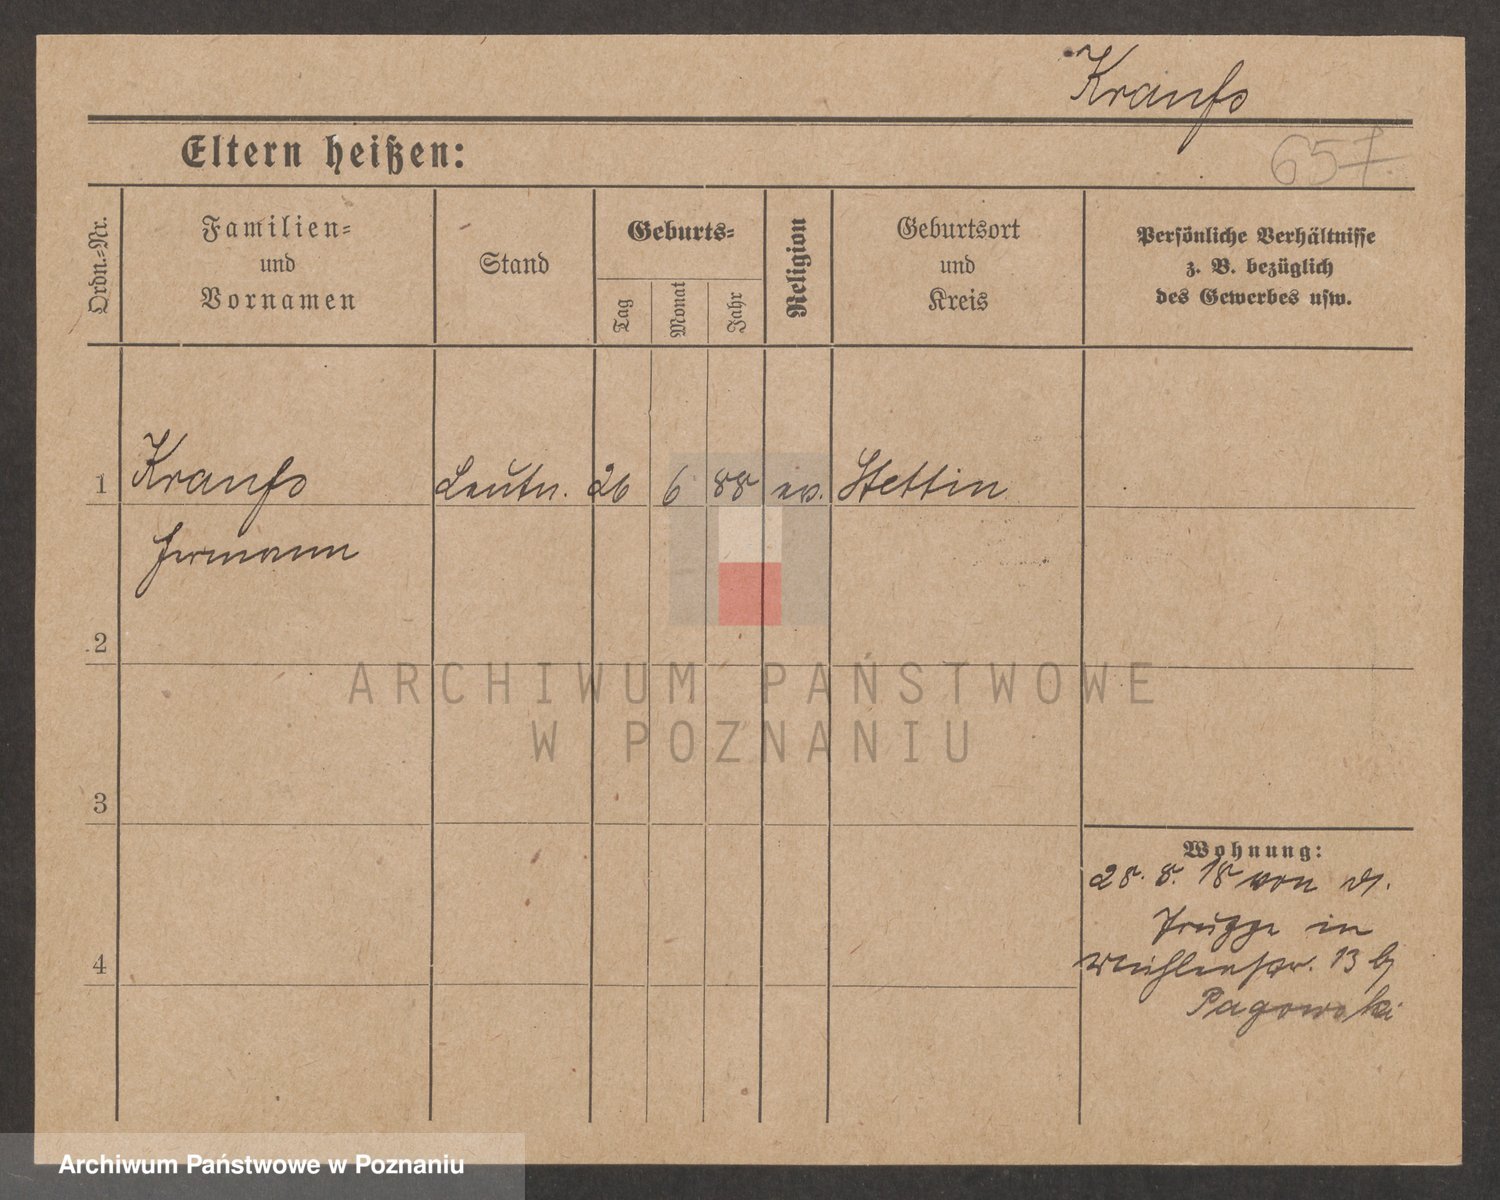 Kranß
657.
Eltern heißen:
Ordn.-Nr.
Familien-
und
Vornamen
Stand
Geburts-
Tag
Monat
Jahr
Religion
Geburtsort
und
Kreis
Persönliche Verhältnisse
z. B. bezüglich
des Gewerbes usw.
1 Kranß Leutn. 26 6 88 ev. Stettin
Hermann
2
3
4
Wohnung:
28. 8. 18 von d.
Truppe in
Mühlenstr. 13 b/
Pagowski
ARCHIWUM PAŃSTWOWE
W POZNANIU
Archiwum Państwowe w Poznaniu